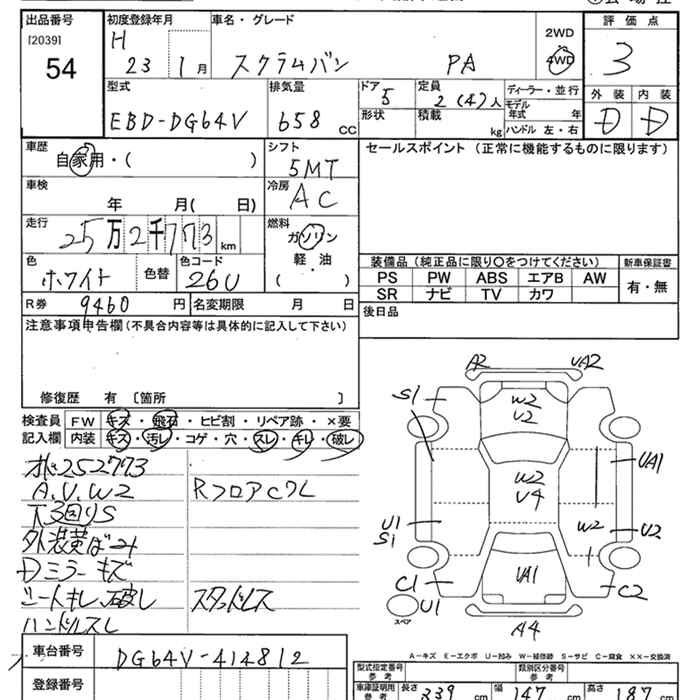 出品番号 初度登録年月 車名・グレード 2WD 評価点
[2039] H スクラムバン PA 4WD 3
54 23 1月
型式 排気量 ドア 定員 ディーラー・並行 外装 内装
EBD-DG64V 658 CC 5 2(4)人 モデル年式 年 D D
形状 積載 kg ハンドル 左・右
車歴 シフト セールスポイント(正常に機能するものに限ります)
自家用・( ) 5MT
車検 冷房
年 月( 日) AC
走行 燃料
25万2千773km ガソリン
軽油
( )
色 色替 色コード 装備品(純正品に限り○をつけてください) 新車保証書
ホワイト 26U PS PW ABS エアB AW 有・無
SR ナビ TV カワ
R券 9460円 名変期限 月 日 後日品
注意事項申告欄(不具合内容等は具体的に記入して下さい)
修復歴 有 〔箇所 〕
検査員 FW キズ・飛石・ヒビ割・リペア跡・×要
記入欄 内装 キズ・汚レ・コゲ・穴・スレ・キレ・破レ
オキ252773
A.U.W2 RフロアCクレ
下回りS
外装黄ばみ
Dミラーキズ
シートキレ、破レ スタッドレス
ハンドルスレ
車台番号 DG64V-414812
登録番号
A2 UA2
S1 W2
U2
UA1
W2
U4
U1 W2 U2
S1
C1 UA1 C2
U1
スペア
A4
A-キズ E-エクボ U-凹み W-補修跡 S-サビ C-腐食 XX-交換済
型式指定番号 類別区分番号
参考 参考
車庫証明用 長さ 339cm 幅 147cm 高さ 187cm
参考